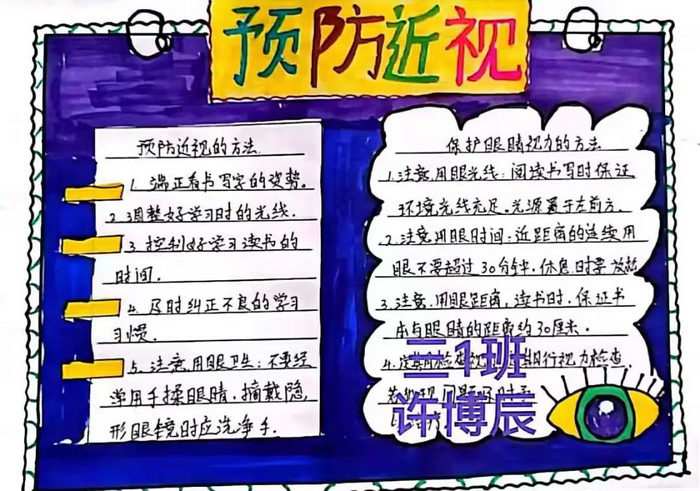 预防近视
预防近视的方法
1. 端正看书写字的姿势。
2. 调整好学习时的光线.
3. 控制好学习读书的
时间.
4. 及时纠正不良的学习
习惯.
5. 注意用眼卫生:不要经
常用手揉眼睛,摘戴隐
形眼镜时应洗净手.
保护眼睛视力的方法
1.注意用眼光线:阅读书写时保证
环境光线充足,光源置于左前方.
2.注意用眼时间:近距离的连续用
眼不要超过30分钟,休息时要放松
3.注意用眼距离,读书时,保证书
本与眼睛的距离约30厘米.
4.定期检查视 行视力检查
三1班
许博辰